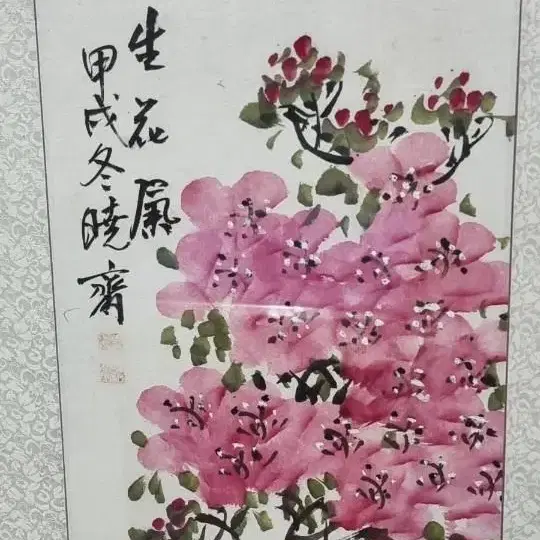 生花屬
甲戌冬曉齋